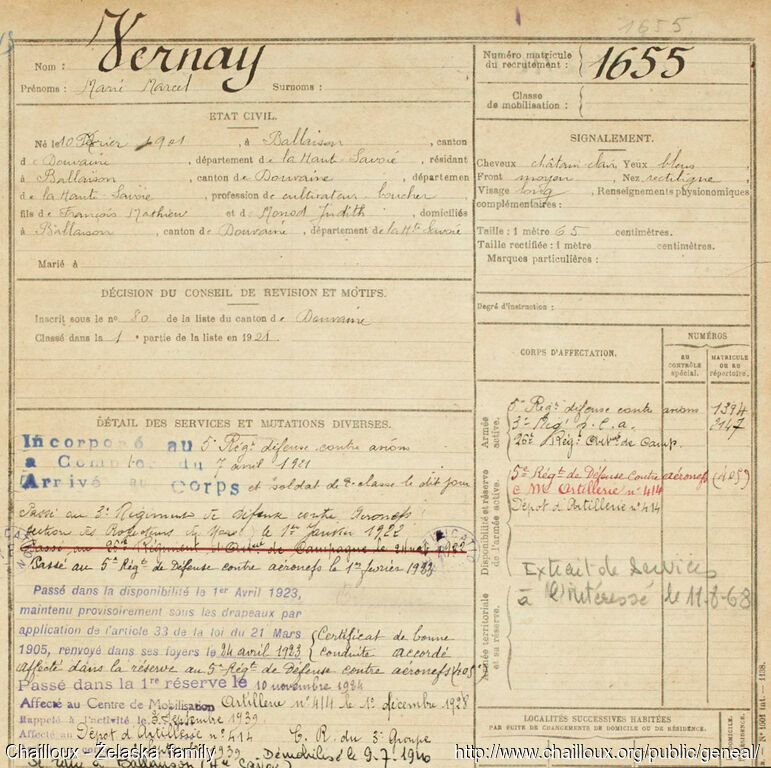 1655
Nom : Vernay
Prénoms : Marie Marcel Surnoms :
ETAT CIVIL.
Né le 10 Février 1901, à Ballaison, canton
de Douvaine, département de la Haute-Savoie, résidant
à Ballaison, canton de Douvaine, départemen
de la Haute-Savoie, profession de cultivateur-boucher
fils de François Mathieu et de Monod Judith, domiciliés
à Ballaison, canton de Douvaine, département de la Hte Savoie
Marié à
DÉCISION DU CONSEIL DE REVISION ET MOTIFS.
Inscrit sous le no 80 de la liste du canton de Douvaine
Classé dans la 1e partie de la liste en 1921
DÉTAIL DES SERVICES ET MUTATIONS DIVERSES.
Incorporé au 5e Régt défense contre avions
à Compter du 7 avril 1921
Arrivé au Corps et soldat de 2e classe le dit jour
Passé au 3e Régiment de défense contre Aéronefs
section des Projecteurs le 1er Janvier 1922
Passé au 26me Régiment d'Artie de Campagne le 1922
Passé au 5e Régt de Défense contre aéronefs le 1er février 1923
Passé dans la disponibilité le 1er Avril 1923,
maintenu provisoirement sous les drapeaux par
application de l'article 33 de la loi du 21 Mars
1905, renvoyé dans ses foyers le 24 avril 1923
Certificat de bonne
conduite accordé
affecté dans la réserve au 5e Régt de Défense contre aéronefs (405)
Passé dans la 1re réserve le 10 novembre 1924
Affecté au Centre de Mobilisation Artillerie no 414 le 1er décembre 1928
Rappelé à l'activité le 3 Septembre 1939
Affecté au Dépôt d'Artillerie no 414 C. R. du 3e Groupe
1939 Démobilisé le 9.7.1940
Se retire à Ballaison (Hte Savoie)
Numéro matricule
du recrutement : 1655
Classe
de mobilisation :
SIGNALEMENT.
Cheveux châtain clair Yeux bleus
Front moyen, Nez rectiligne
Visage long, Renseignements physionomiques
complémentaires :
Taille : 1 mètre 65 centimètres.
Taille rectifiée : 1 mètre centimètres.
Marques particulières :
Degré d'instruction :
CORPS D'AFFECTATION.
NUMÉROS
AU CONTRÔLE spécial.
MATRICULE OU AU répertoire.
Armée active.
5e Régt défense contre avions 1394
3e Régt D.C.a. 3147
26e Régt Artie de Camp.
Disponibilité et réserve de l'armée active.
5e Régt de Défense Contre aéronefs (405)
C M Artillerie no 414
Dépôt d'Artillerie no 414
Armée territoriale et sa réserve.
Extrait de Services
à l'Intéressé le 11-8-68
LOCALITÉS SUCCESSIVES HABITÉES
PAR SUITE DE CHANGEMENTS DE DOMICILE OU DE RÉSIDENCE.
Chailloux - Zelaska family
http://www.chailloux.org/public/geneal/